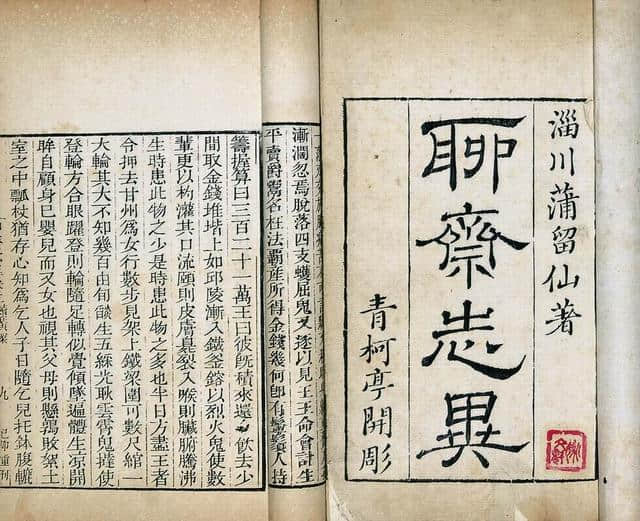 淄川蒲留仙著
聊齋志異
青柯亭開彫
漸瀾忽焉脫落四支蠖屈鬼又逐以見王王命會計生
平賣爵鬻名枉法霸產所得金錢幾何即有鬚人持
籌握算曰三百二十一萬王曰彼旣積來還飲去少
間取金錢堆堦上如邱陵漸入鐵釜鎔以烈火鬼使數
輩更以杓灌其口流頤則皮膚臭裂入喉則臟腑騰沸
生時患此物之少是時患此物之多也半日方盡王者
令押去甘州爲女行數步見架上鐵梁圍可數尺綰一
大輪其大不知幾百由旬燄生五綵光耿雲霄鬼撻使
登輪方合眼躍登則輪隨足轉似覺傾墜遍體生凉開
眸自顧身已嬰兒而又女也視其父母則懸鶉敗絮土
室之中瓢杖猶存心知爲乞人子日隨乞兒托鉢腹轆
九